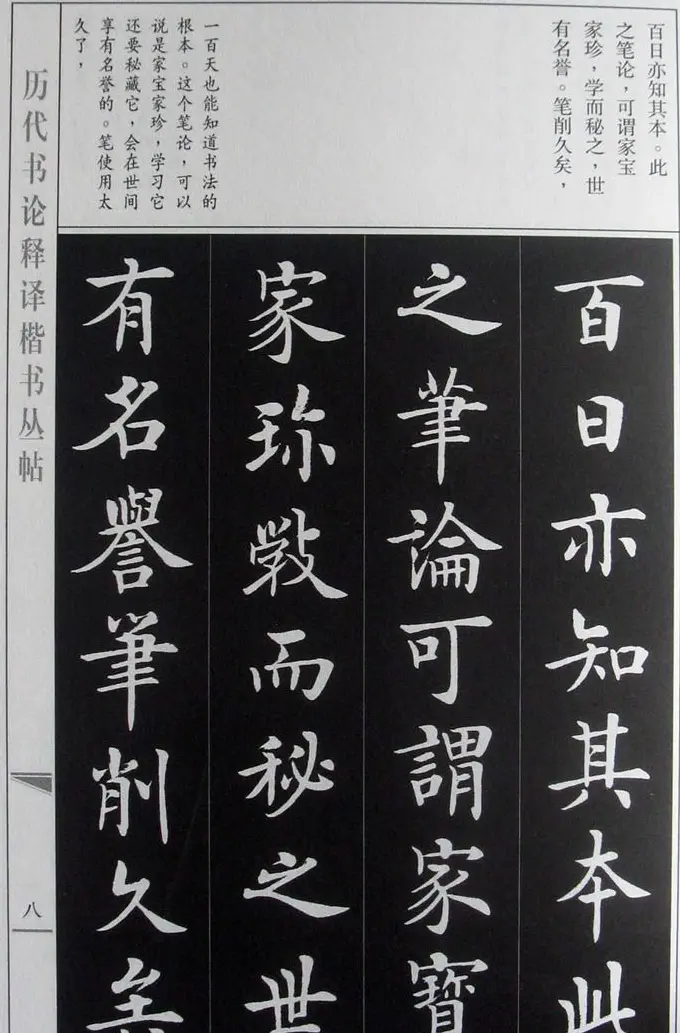 百日亦知其本。此
之笔论，可谓家宝
家珍，学而秘之，世
有名誉。笔削久矣，
一百天也能知道书法的
根本。这个笔论，可以
说是家宝家珍，学习它
还要秘藏它，会在世间
享有名誉的。笔使用太
久了，
百日亦知其本此
之筆論可謂家寶
家珎斅而秘之世
有名譽筆削久矣
历代书论释译楷书丛帖
八